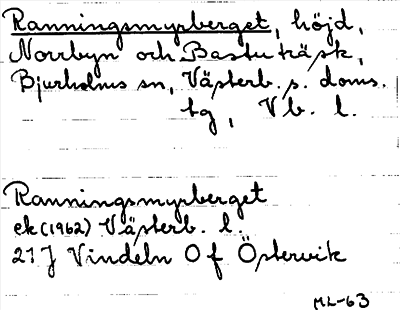 Ranningsmyrberget, höjd,
Norrbyn och Bastuträsk,
Bjurholms sn, Västerb. s. doms.
tg, Vb. l.
Ranningsmyrberget
ek (1962) Västerb. l.
21J Vindeln 0f Östervik
ML-63